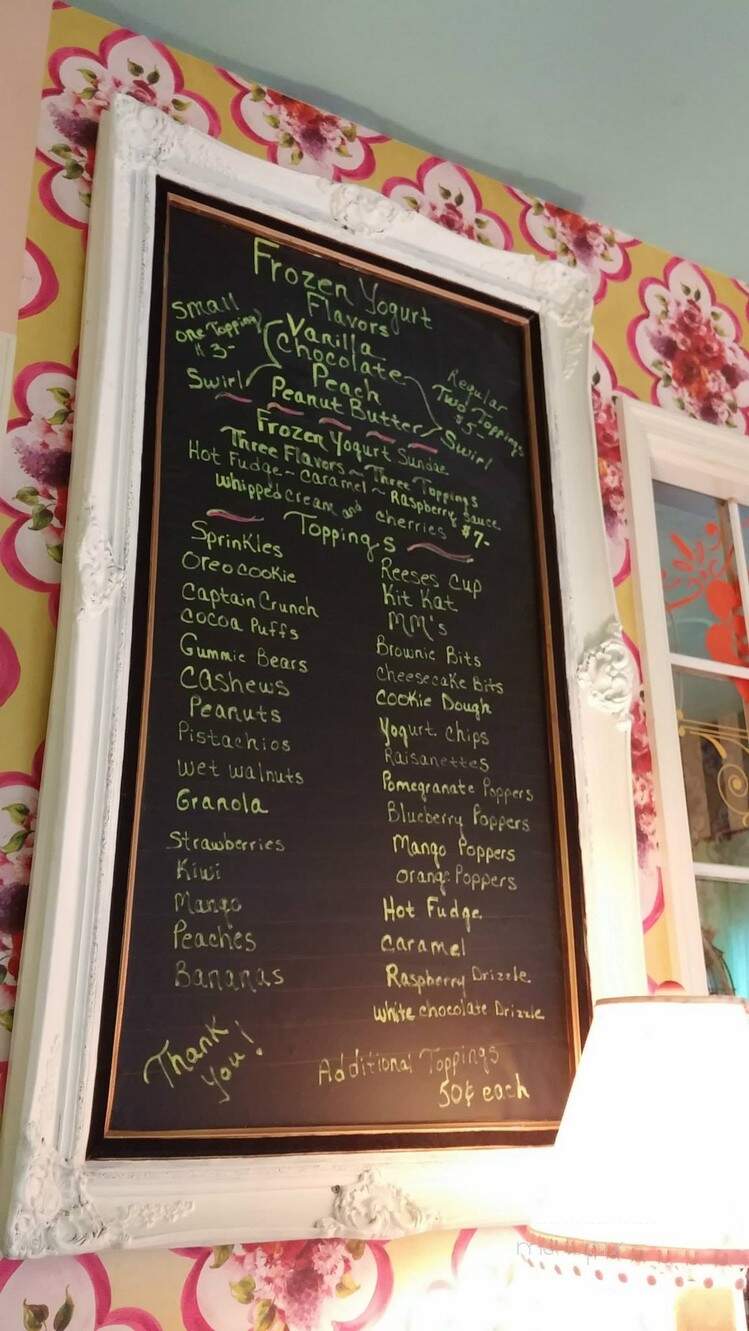 Frozen Yogurt
Flavors
Small
one Topping
$3-
Vanilla
Chocolate
Peach
Peanut Butter
Swirl
Regular
Two Toppings
$5-
Swirl
Frozen Yogurt Sundae
Three Flavors ~ Three Toppings
Hot Fudge ~ Caramel ~ Raspberry Sauce
Whipped cream and cherries $7-
Toppings
Sprinkles
Oreo cookie
Captain Crunch
Cocoa Puffs
Gummie Bears
Cashews
Peanuts
Pistachios
wet walnuts
Granola
Strawberries
Kiwi
Mango
Peaches
Bananas
Reeses Cup
Kit Kat
MM's
Brownie Bits
Cheesecake Bits
Cookie Dough
Yogurt Chips
Raisanettes
Pomegranate Poppers
Blueberry Poppers
Mango Poppers
orange Poppers
Hot Fudge
Caramel
Raspberry Drizzle
white chocolate Drizzle
Thank
you!
Additional Toppings
50¢ each